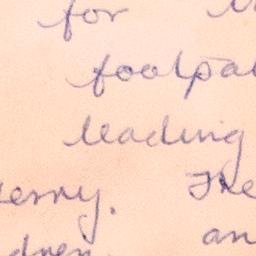 for
footpa
leading
erry. The
dren. an